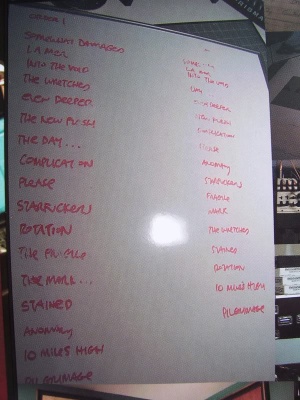 SOMEWHAT DAMAGED
LA MER
INTO THE VOID
THE WRETCHED
EVEN DEEPER
THE NEW FLESH
THE DAY...
COMPLICATION
PLEASE
STARFUCKERS
ROTATION
THE FRAGILE
THE MARK...
STAINED
ANOMALY
10 MILES HIGH
PILGRIMAGE
LA MER
INTO THE VOID
DAY
EVEN DEEPER
NEW FLESH
COMPLICATION
PLEASE
ANOMALY
STARFUCKERS
FRAGILE
MARK
THE WRETCHED
STAINED
ROTATION
10 MILES HIGH
PILGRIMAGE